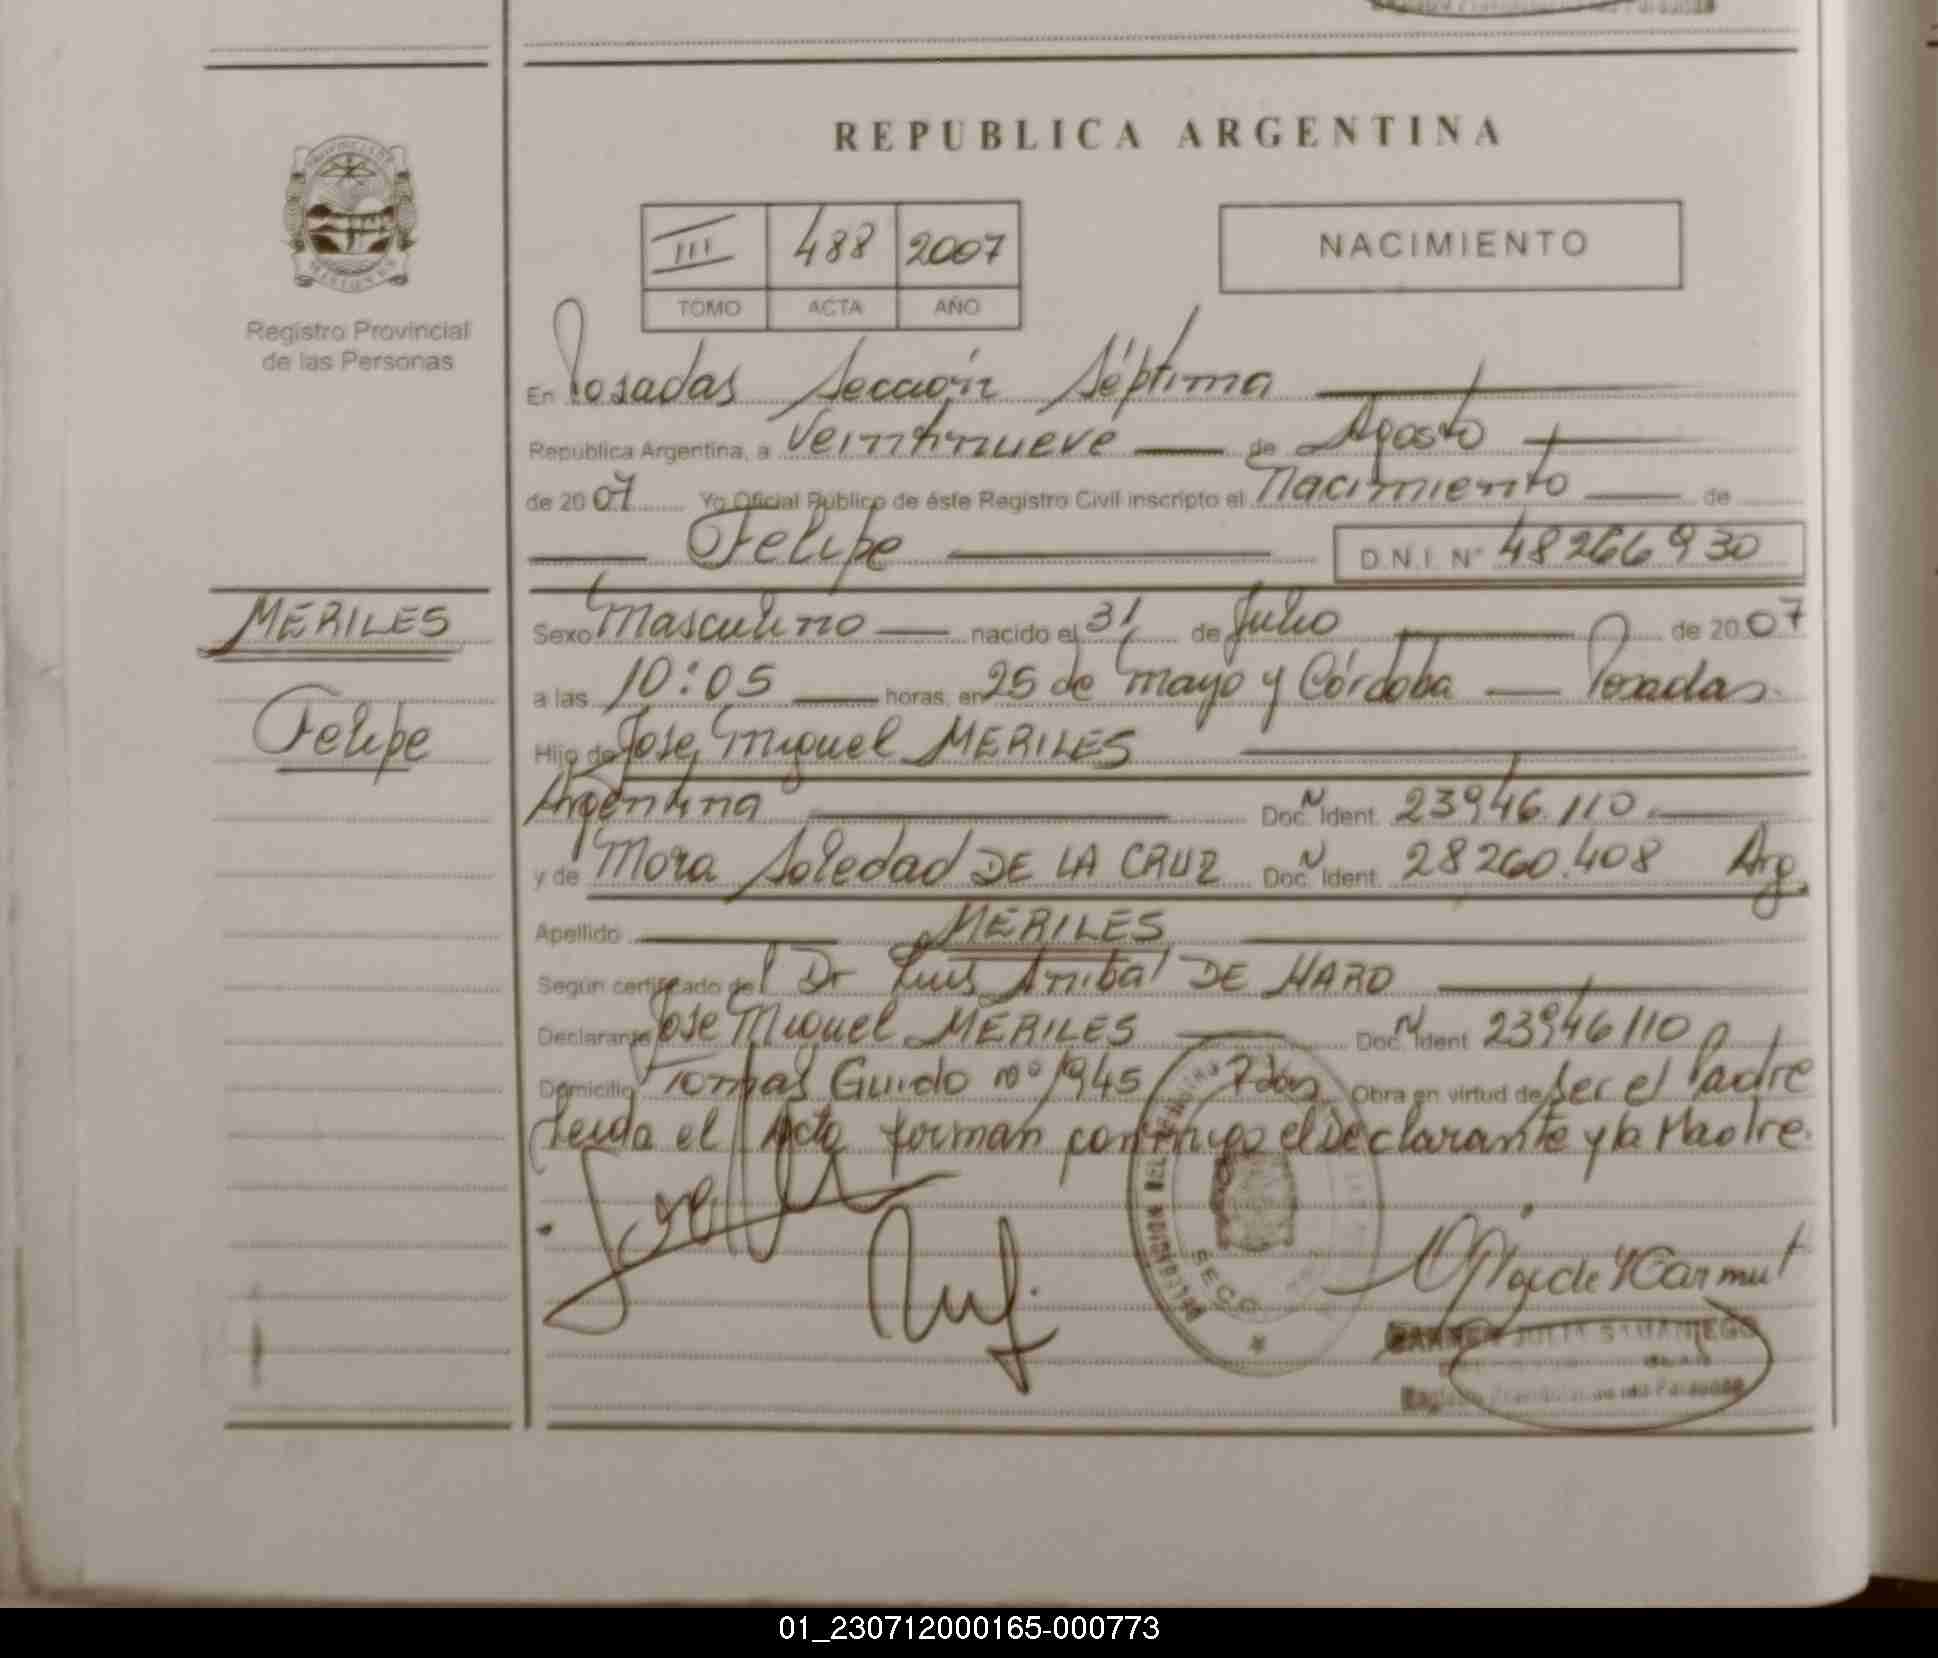 REPUBLICA ARGENTINA
PROVINCIA DE
MISIONES
Registro Provincial
de las Personas
III 488 2007
TOMO ACTA AÑO
NACIMIENTO
En Posadas Sección Séptima
Republica Argentina, a Veintinueve de Agosto
de 2007 Yo Oficial Publico de éste Registro Civil inscripto el Nacimiento de
Felipe D.N.I. N° 48266930
MERILES
Felipe
Sexo Masculino nacido el 31 de Julio de 2007
a las 10:05 horas, en 25 de Mayo y Córdoba Posadas.
Hijo de Jose Miguel MERILES
Argentina Doc. N Ident. 23946.110
y de Mora Soledad DE LA CRUZ Doc. N Ident. 28260.408 Arg.
Apellido MERILES
Según certificado del Dr Luis Anibal DE HARO
Declarante Jose Miguel MERILES Doc. N Ident 23946110
Domicilio Tomas Guido nº 1945 Pdas Obra en virtud de ser el Padre
Leida el Acta forman conmigo el Declarante y la Madre.
SECC
CARMEN JULIA SAMANIEGO
01_230712000165-000773